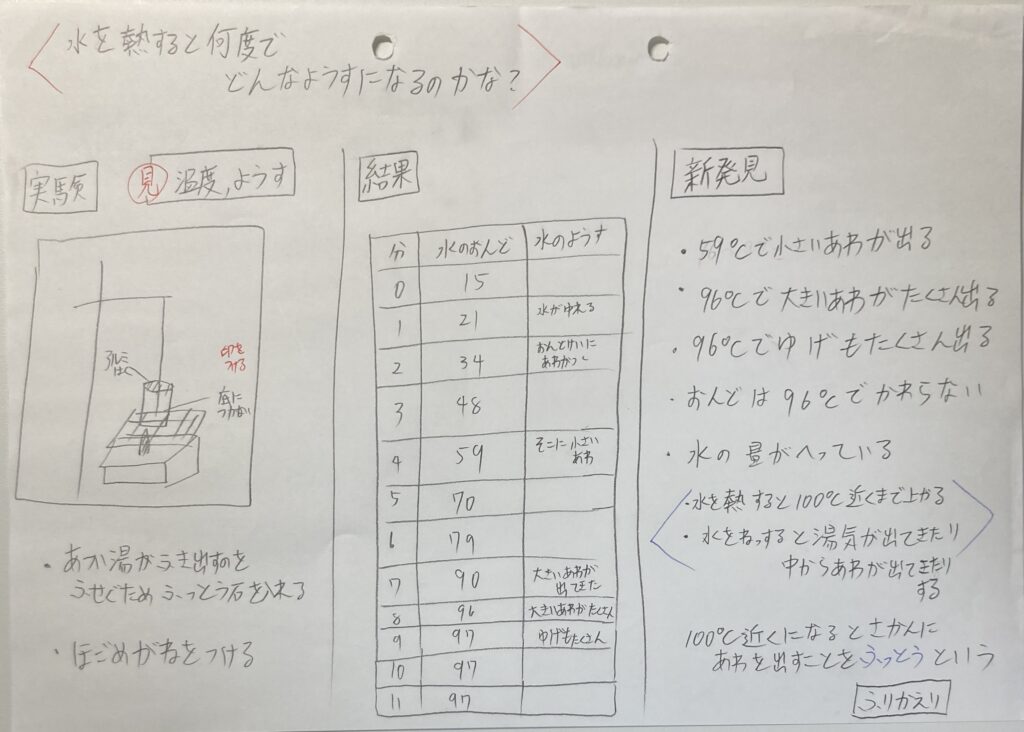 水を熱すると何度で
どんなようすになるのかな?
実験
見 温度,ようす
アルミ
はく
印を
つける
底に
つかない
・あつい湯がふき出すのを
ふせぐため ふっとう石を入れる
・ほごめがねをつける
結果
分 水のおんど 水のようす
0 15
1 21 水がゆれる
2 34 おんどけいに
あわがつく
3 48
4 59 そこに小さい
あわ
5 70
6 79
7 90 大きいあわが
出てきた
8 96 大きいあわがたくさん
9 97 ゆげもたくさん
10 97
11 97
新発見
・59℃で小さいあわが出る
・96℃で大きいあわがたくさん出る
・96℃でゆげもたくさん出る
・おんどは96℃でかわらない
・水の量がへっている
・水を熱すると100℃近くまで上がる
・水をねっすると湯気が出てきたり
中からあわが出てきたり
する
100℃近くになるとさかんに
あわを出すことをふっとうという
ふりかえり